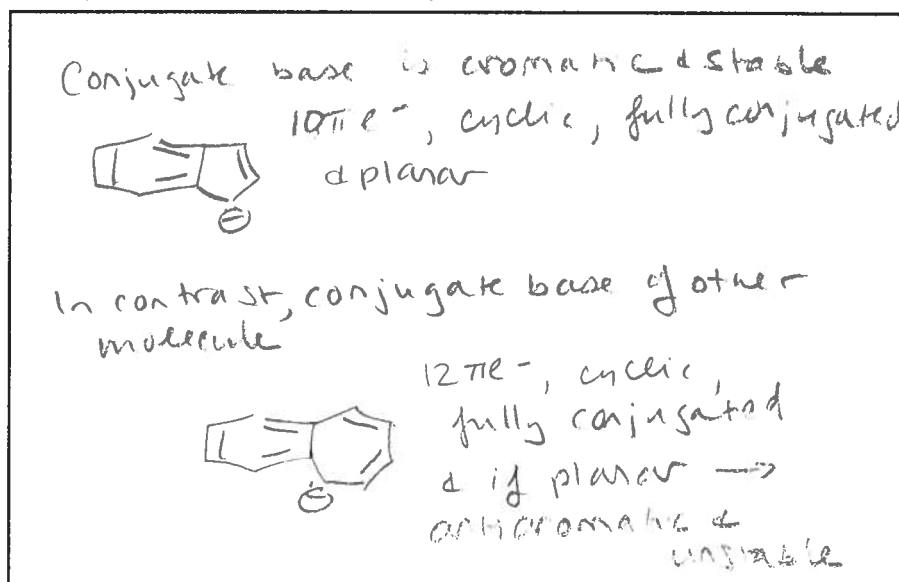 Conjugate base is aromatic & stable
10π e⁻, cyclic, fully conjugated
& planar
⊖
In contrast, conjugate base of other
molecule
12πe⁻, cyclic,
fully conjugated
& if planar →
antiaromatic &
unstable
⊖